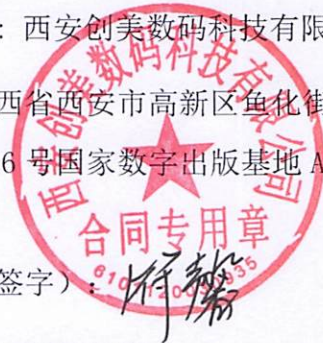 ：西安创美数码科技有限
西省西安市高新区鱼化街
6 号国家数字出版基地 A
签字）：
西安创美数码科技有限公司
合同专用章